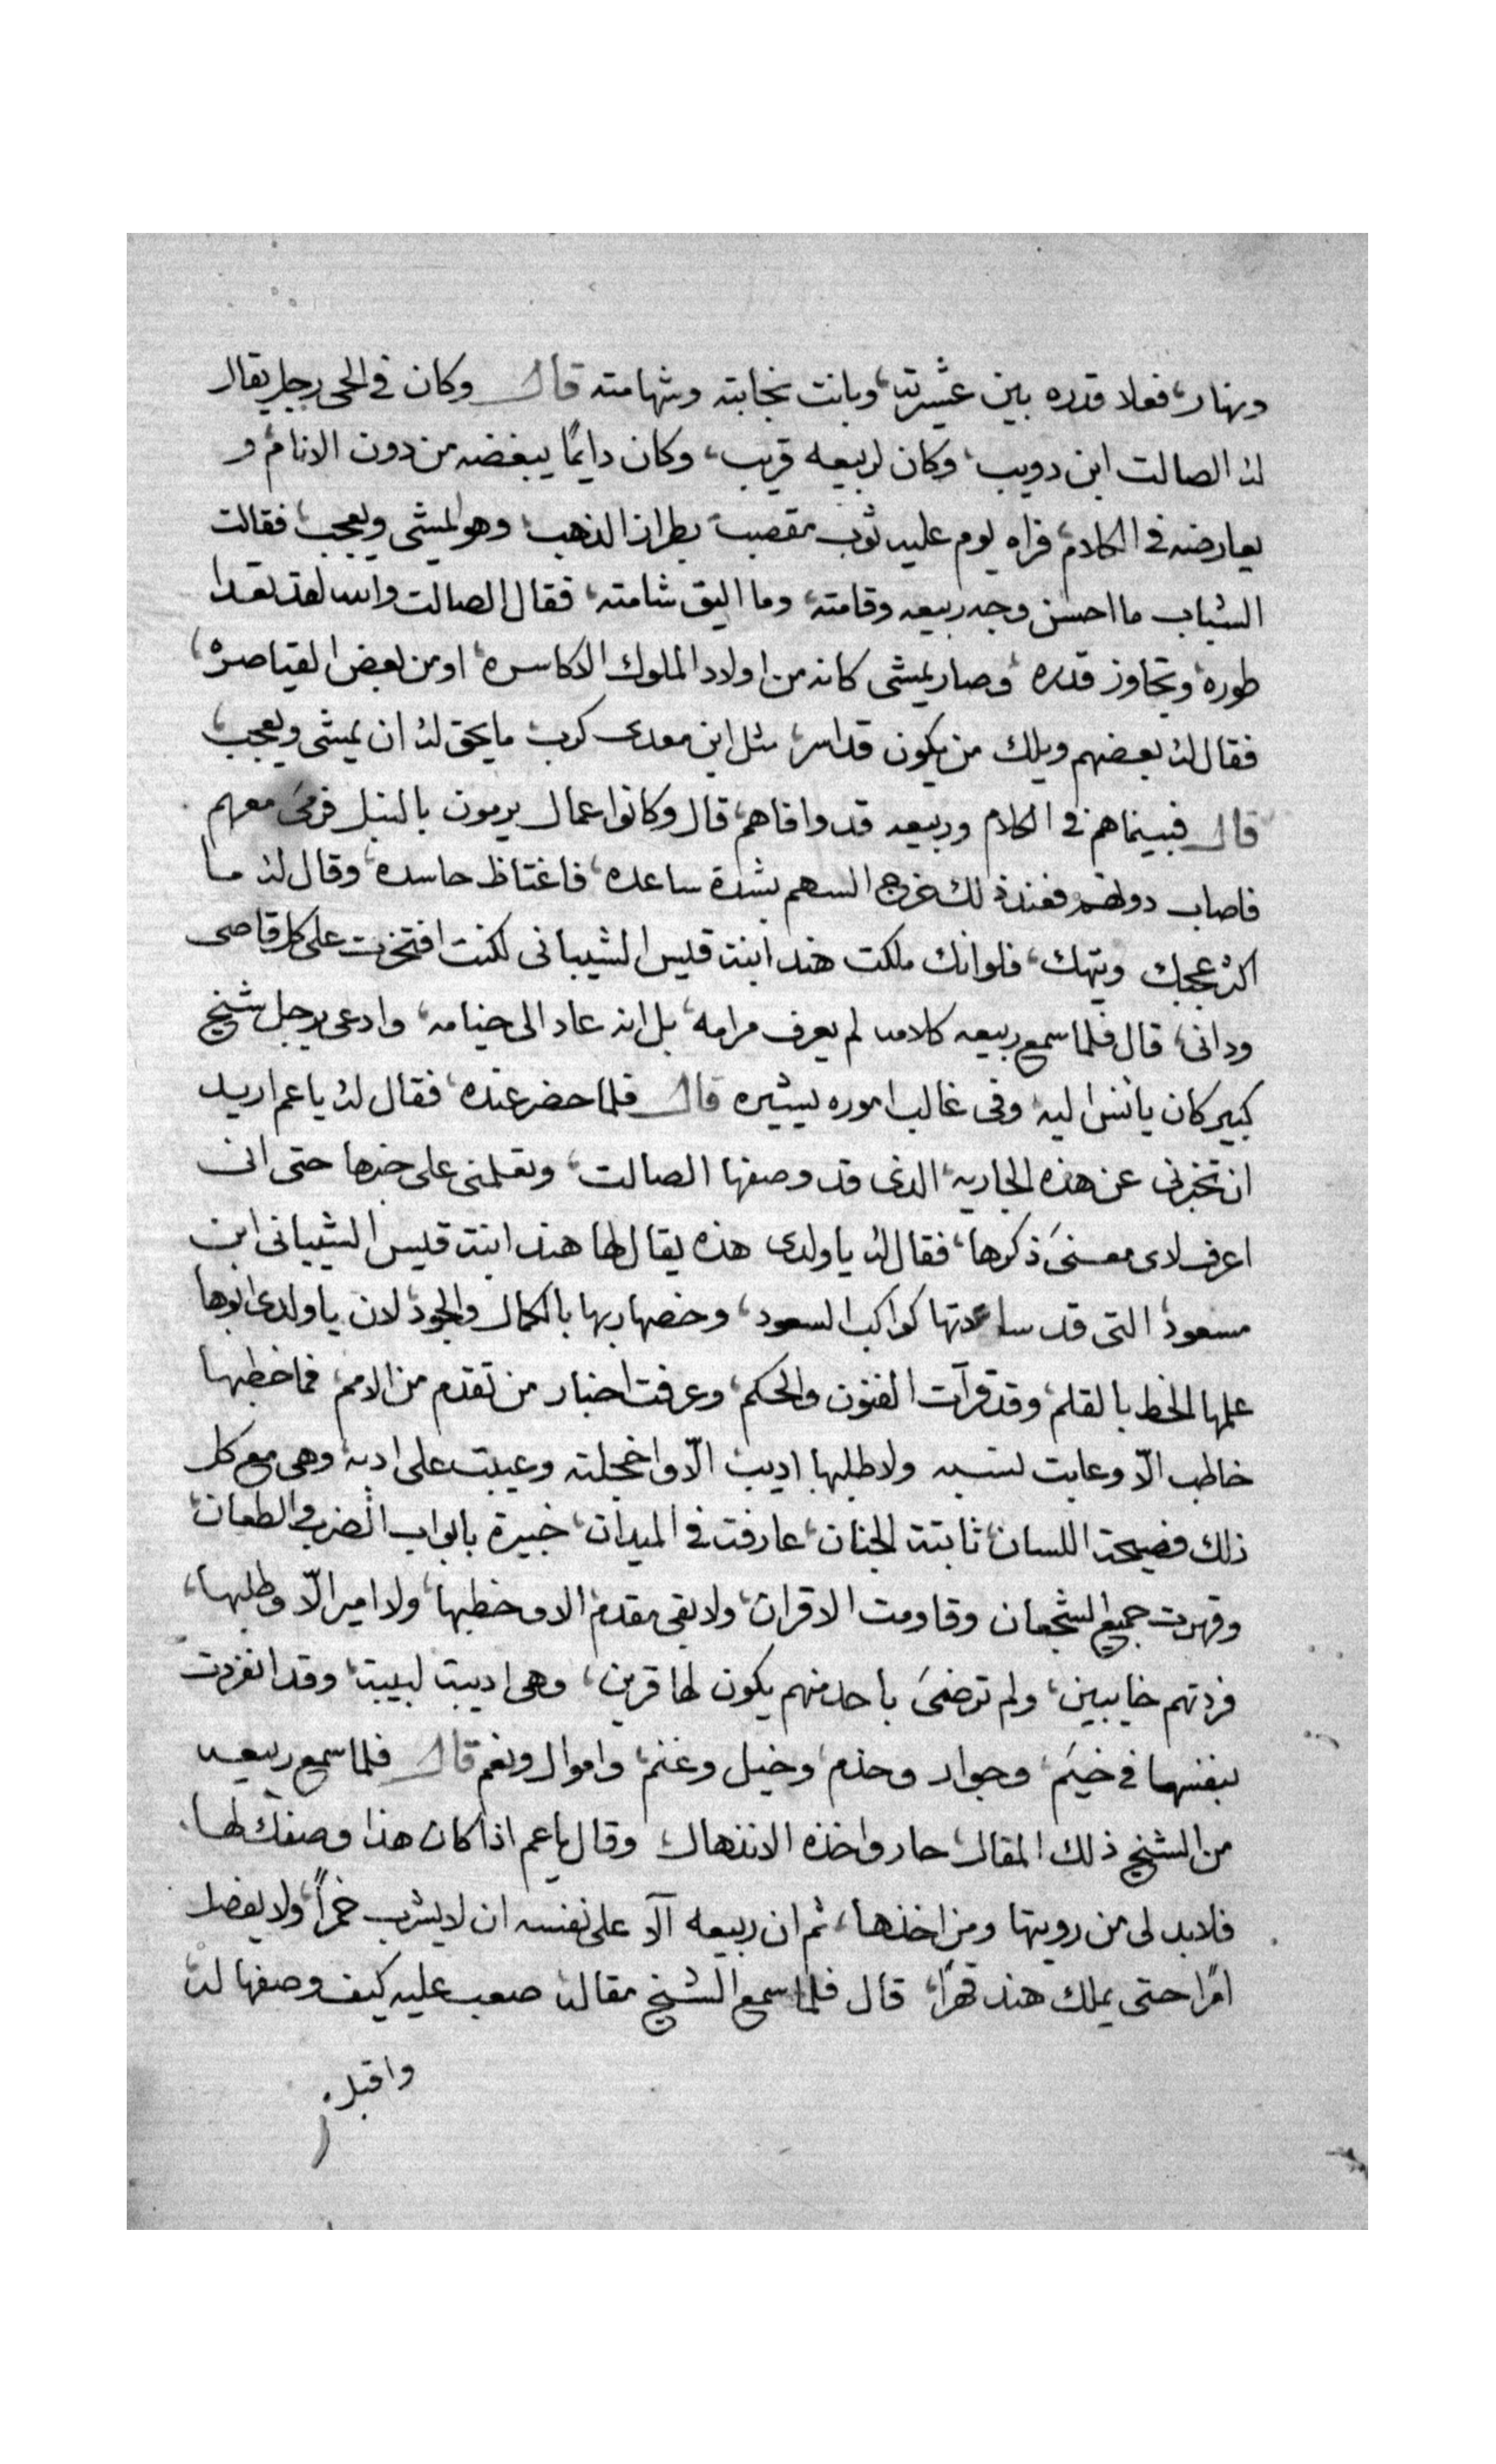 ونهار، فعلا قدره بين عشيرته، وبانت نجابته وشهامته قال وكان في الحى رجل يقال
له الصالت ابن دويب، وكان لربيعه قريب، وكان دايمًا يبغضه من دون الانام، و
يعارضه في الكلام، فراه يوم عليه ثوب مقصب، بطراز الذهب، وهو يمشى ويعجب، فقالت
الشباب ما احسن وجه ربيعه وقامته، وما اليق شامته، فقال الصالت والله لقد تعدا
طوره، وتجاوز قدره، وصار يمشى كانه من اولاد الملوك الاكاسره، او من بعض القياصره،
فقال له بعضهم ويلك من يكون قد اسر، مثل ابن معدى كرب، ما يحق له ان يمشى ويعجب،
قال فبينما هم في الكلام وربيعه قد وافاهم، قال وكانوا عمال يرمون بالنبل فرمىَ معهم
فاصاب دونهم فعند ذلك خرج السهم بشدة ساعده، فاغتاظ حاسده، وقال له ما
اكثر عجبك وتيهك، فلو انك ملكت هند ابنة قيس الشيبانى لكنت افتخرت على كل قاصى
ودانى، قال فلما سمع ربيعه كلامه لم يعرف مرامه، بل انه عاد الى خيامه، وادعى برجل شيخ
كبير كان يانس اليه، وفى غالب اموره يشيره قال فلما حضر عنده، فقال له يا عم اريد
ان تخبرنى عن هذه الجاريه، الذى قد وصفها الصالت، وتعلمنى على خبرها حتى انى
اعرف لاى معنىَ ذكرها، فقال له يا ولدى هذه يقال لها هند ابنة قيس الشيبانى ابن
مسعود، التى قد ساعدتها كواكب السعود، وخصها ربها بالكمال والجود، لان يا ولدى ابوها
علمها الخط بالقلم، وقد قرآت الفنون والحكم، وعرفت اخبار من تقدم من الامم، فما خطبها
خاطب الّا وعابت نسبه ولا طلبها اديب الّا واخجلته وعيبت على ادبه، وهى مع كل
ذلك فصيحة اللسان، ثابتة الجنان، عارفت في الميدان، خبيرة بابواب الضرب والطعان،
وقهرت جميع الشجعان وقاومت الاقران، ولا بقى مقدم الا وخطبها، ولا امير الّا وطلبها،
فردتهم خايبين، ولم ترضىَ باحد منهم يكون لها قرين، وهى اديبة لبيبة، وقد انفردت
بنفسها في خيَم، وجوار وخدم، وخيل وغنم، واموال ونعم قال فلما سمع ربيعه
من الشيخ ذلك المقال، حار واخذه الانذهال، وقال يا عم اذا كان هذا وصفك لها
فلابد لى من رويتها ومن اخذها، ثم ان ربيعه آلا على نفسه ان لا يشرب خمرًا، ولا يفصل
امرًا حتى يملك هند قهرًا، قال فلما سمع الشيخ مقاله صعب عليه كيف وصفها له
واقبل